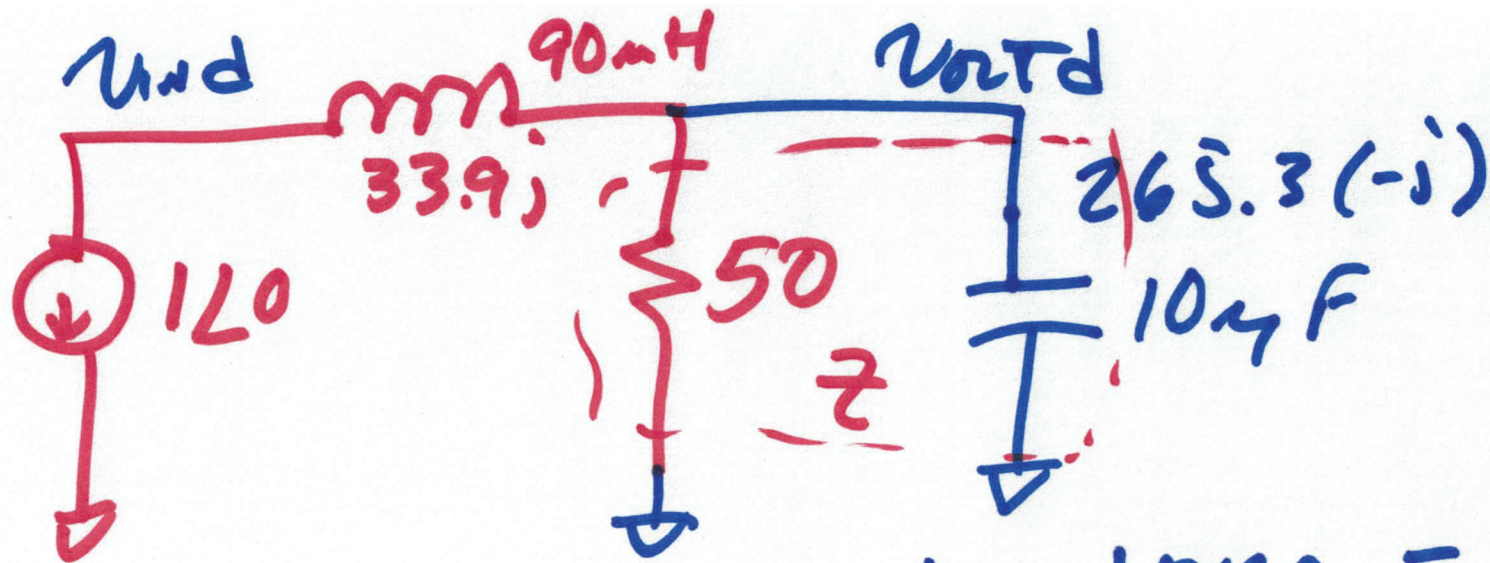 Vind 90mH VOUTd
33.9j 265.3(-j)
1∠0 50 10µF
Z